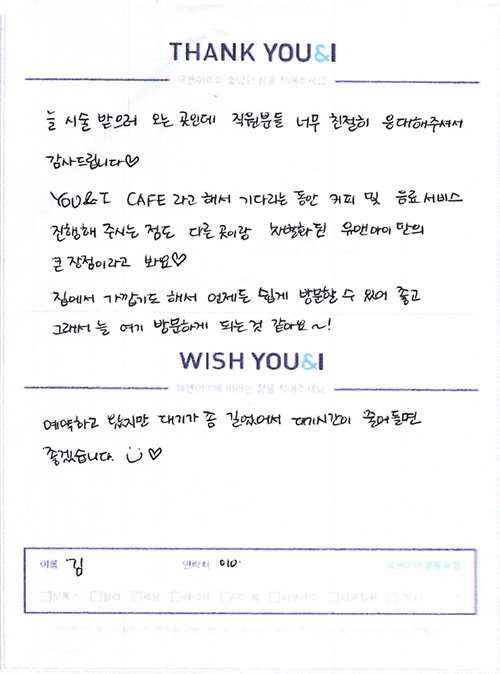 THANK YOU&I
유앤아이의 좋았던 점을 적어주세요
늘 시술 받으러 오는 곳인데 직원분들 너무 친절히 응대해주셔서
감사드립니다♡
YOU&I CAFE 라고 해서 기다리는 동안 커피 및 음료 서비스
진행해 주시는 점도 다른 곳이랑 차별화된 유앤아이만의
큰 장점이라고 봐요♡
집에서 가깝기도 해서 언제든 쉽게 방문할 수 있어 좋고
그래서 늘 여기 방문하게 되는것 같아요~!
WISH YOU&I
유앤아이에 바라는 점을 적어주세요
예약하고 왔지만 대기가 좀 길었어서 대기시간이 줄어들면
좋겠습니다. ☺♡
이름 김 연락처 010.
보톡스 필러 제모 레이저